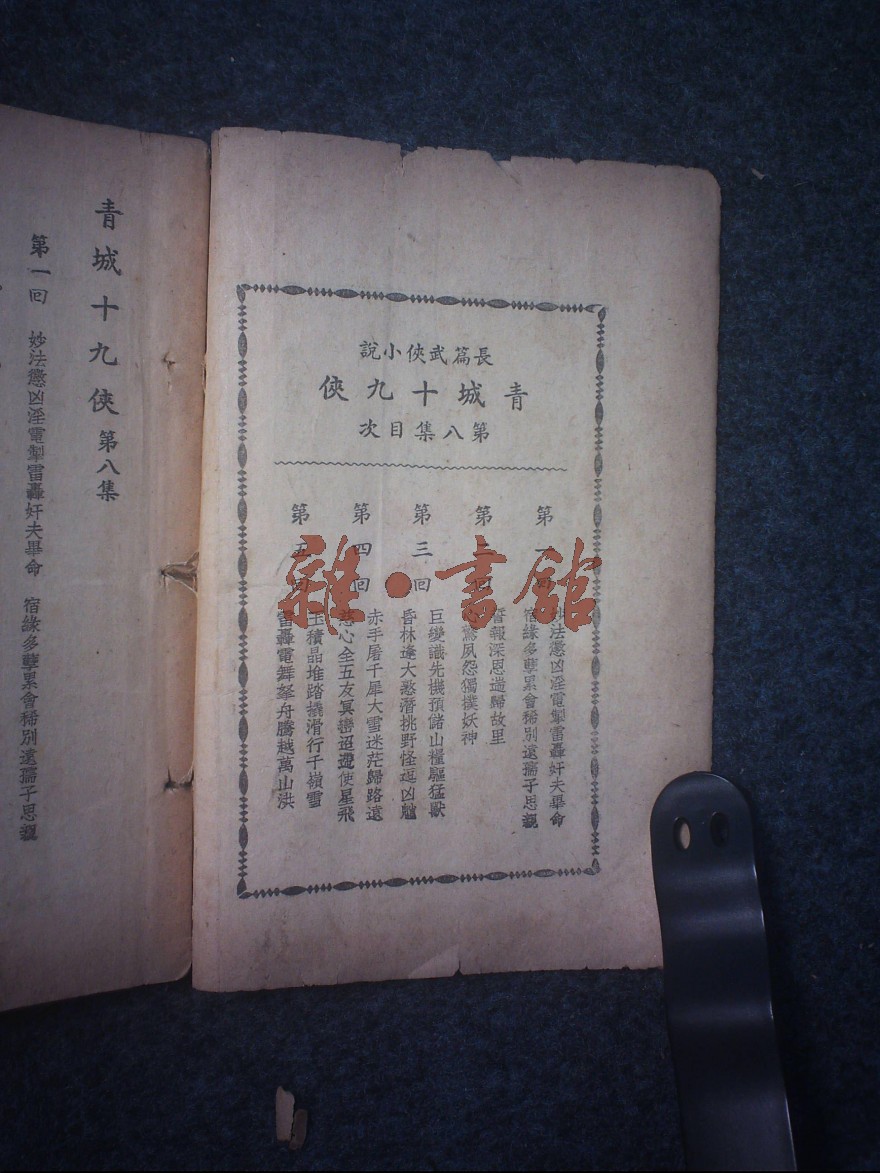 長篇武俠小說
青城十九俠
第八集目次
第一回
妙法懲凶淫電掣雷轟奸夫畢命
宿緣多孽累會稀別遠孺子思親
第二回
報深恩遄歸故里
心驚夙怨獨撲妖神
第三回
巨變識先機預儲山糧驅猛獸
昏林逢大憝潛挑野怪逗凶
第四回
赤手屠千犀大雪迷茫歸路遠
慈心全五友冥巒迢遞使星飛
第五回
玉積晶堆踏橇滑行千嶺雪
雷轟電舞拏舟騰越萬山洪
青城十九俠 第八集
第一回 妙法懲凶淫電掣雷轟奸夫畢命 宿緣多孽累會稀別遠孺子思親
雜·書館